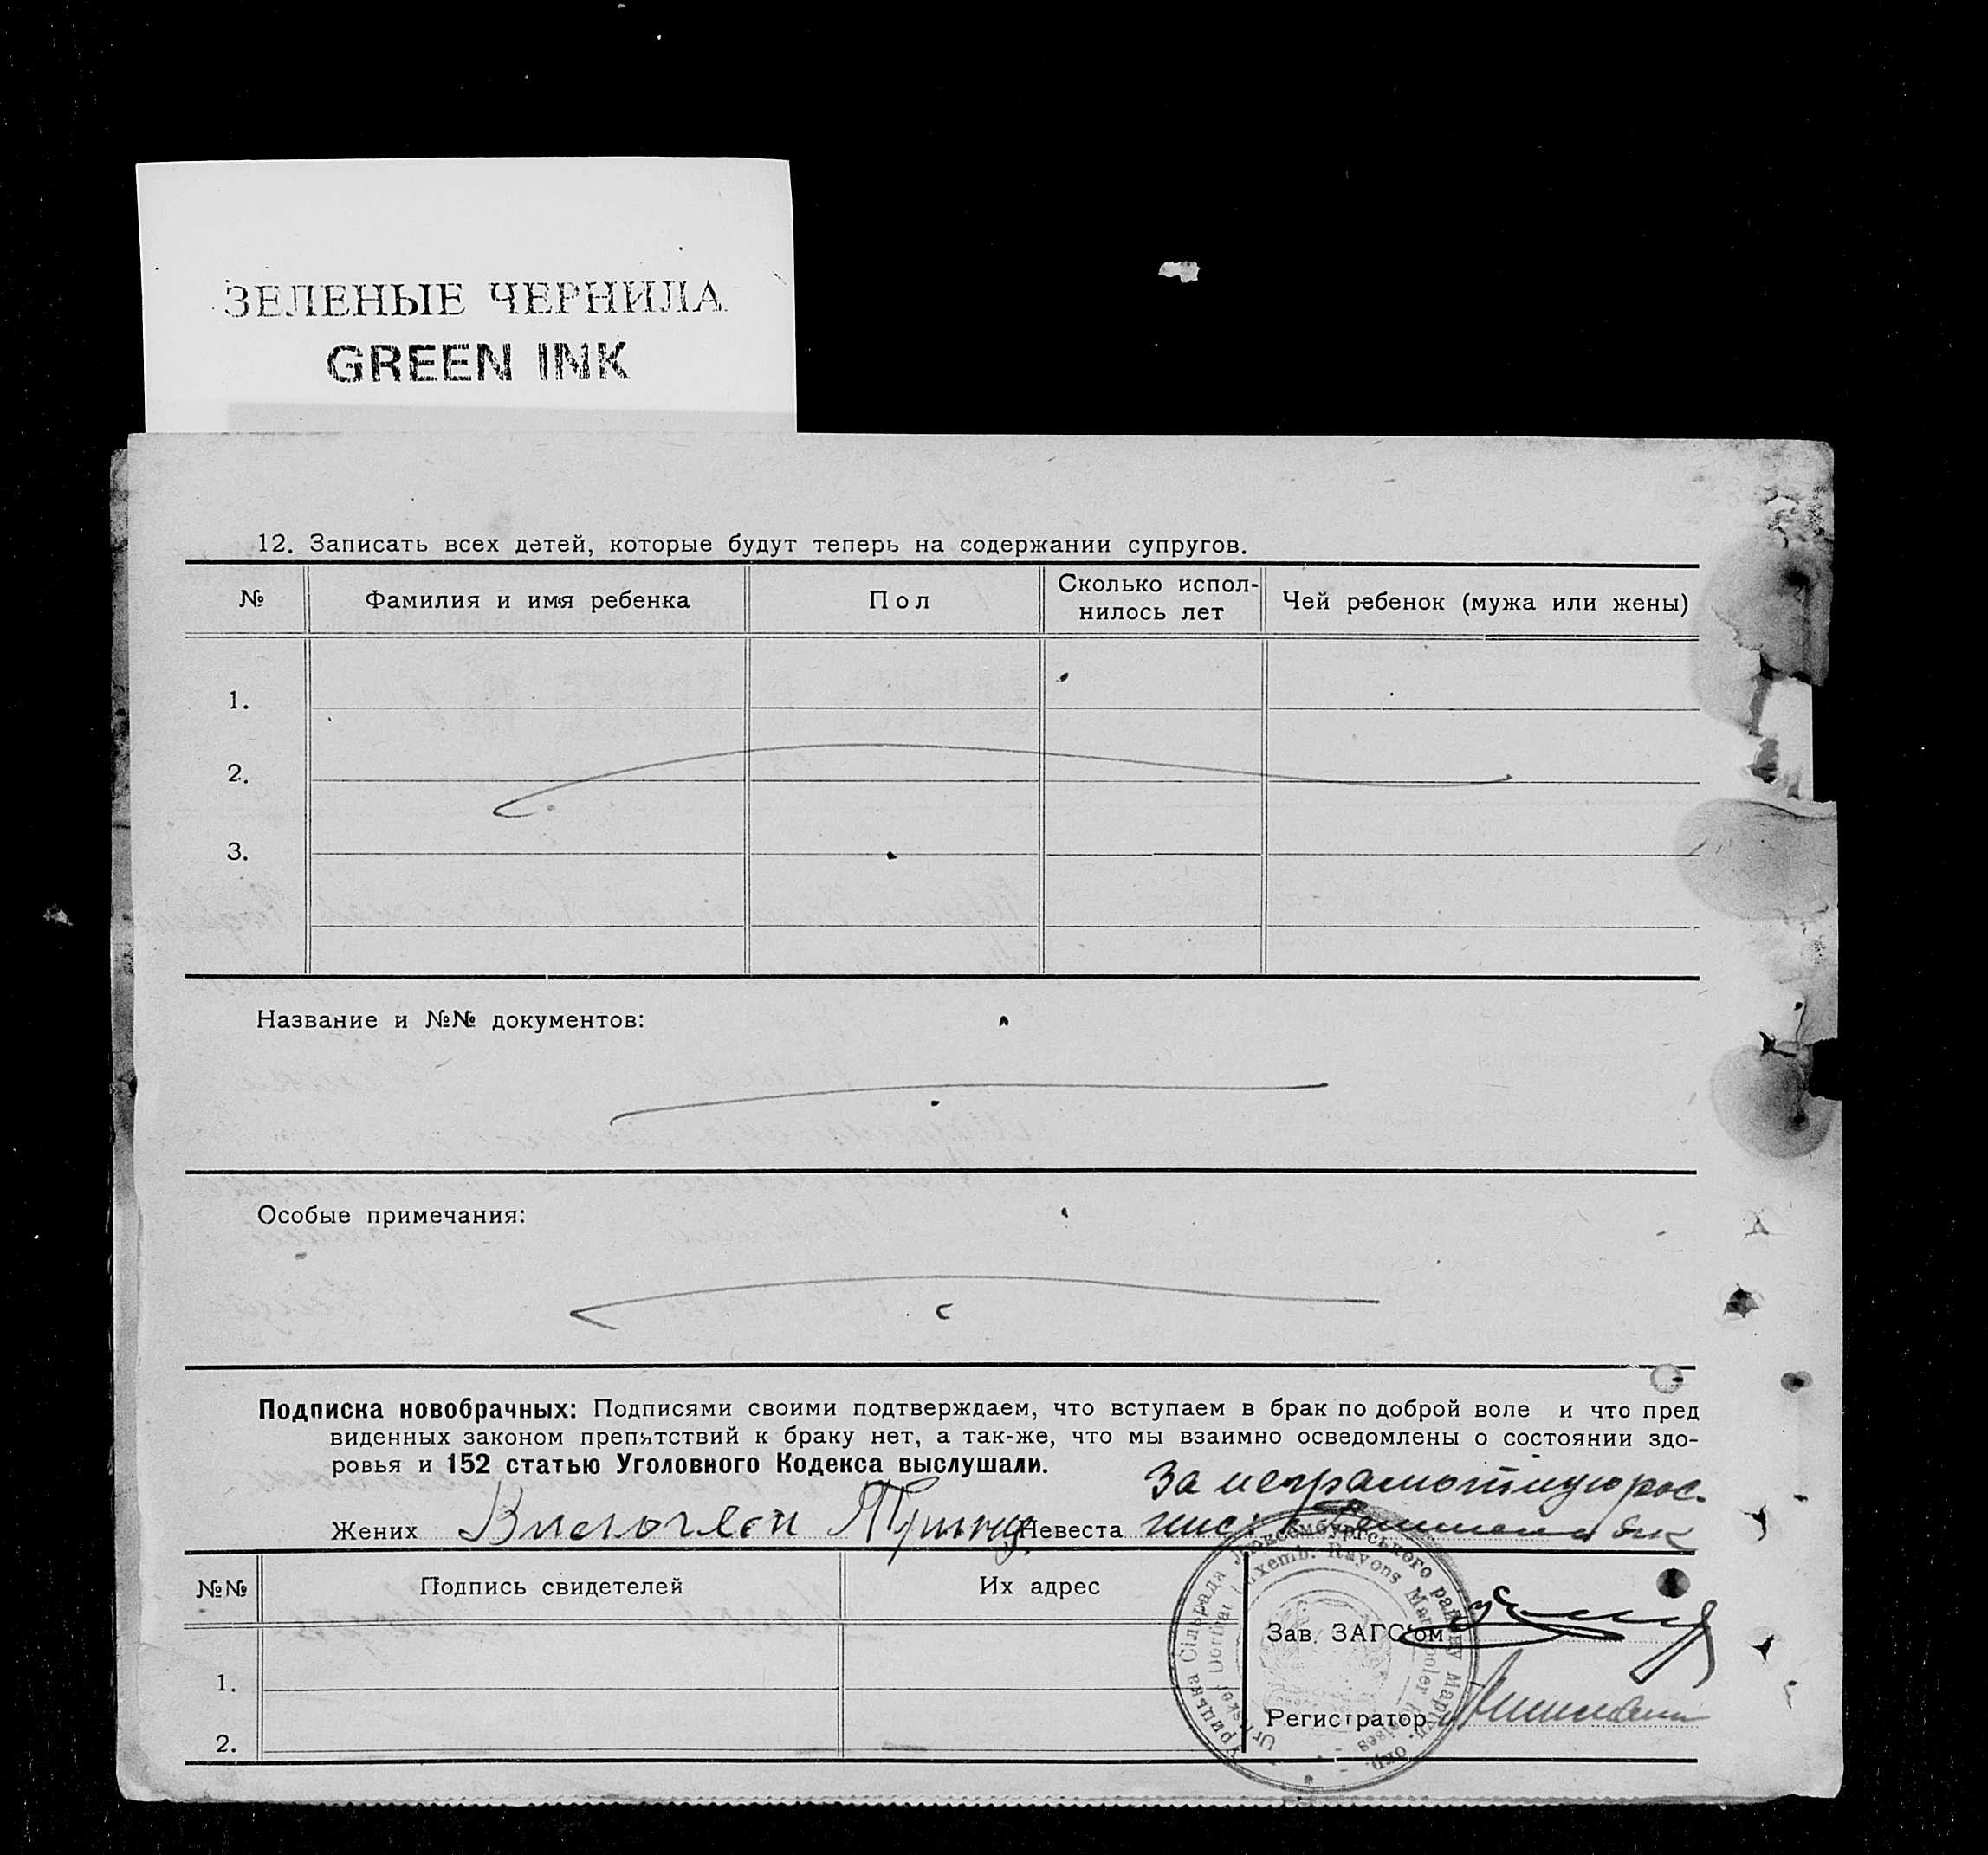 ЗЕЛЕНЫЕ ЧЕРНИЛА
GREEN INK
12. Записать всех детей, которые будут теперь на содержании супругов.
№ Фамилия и имя ребенка Пол Сколько испол-нилось лет Чей ребенок (мужа или жены)
1.
2.
3.
Название и №№ документов:
Особые примечания:
Подписка новобрачных: Подписями своими подтверждаем, что вступаем в брак по доброй воле и что пред
виденных законом препятствий к браку нет, а так-же, что мы взаимно осведомлены о состоянии здо-
ровья и 152 статью Уголовного Кодекса выслушали.
За неграмотную рос-
Жених Невеста
№№ Подпись свидетелей Их адрес
Зав. ЗАГС'ом
1.
Регистратор
2.
Урицька Сільрада Люксембургського району Маріуп. окр.
Luxemb. Rayons